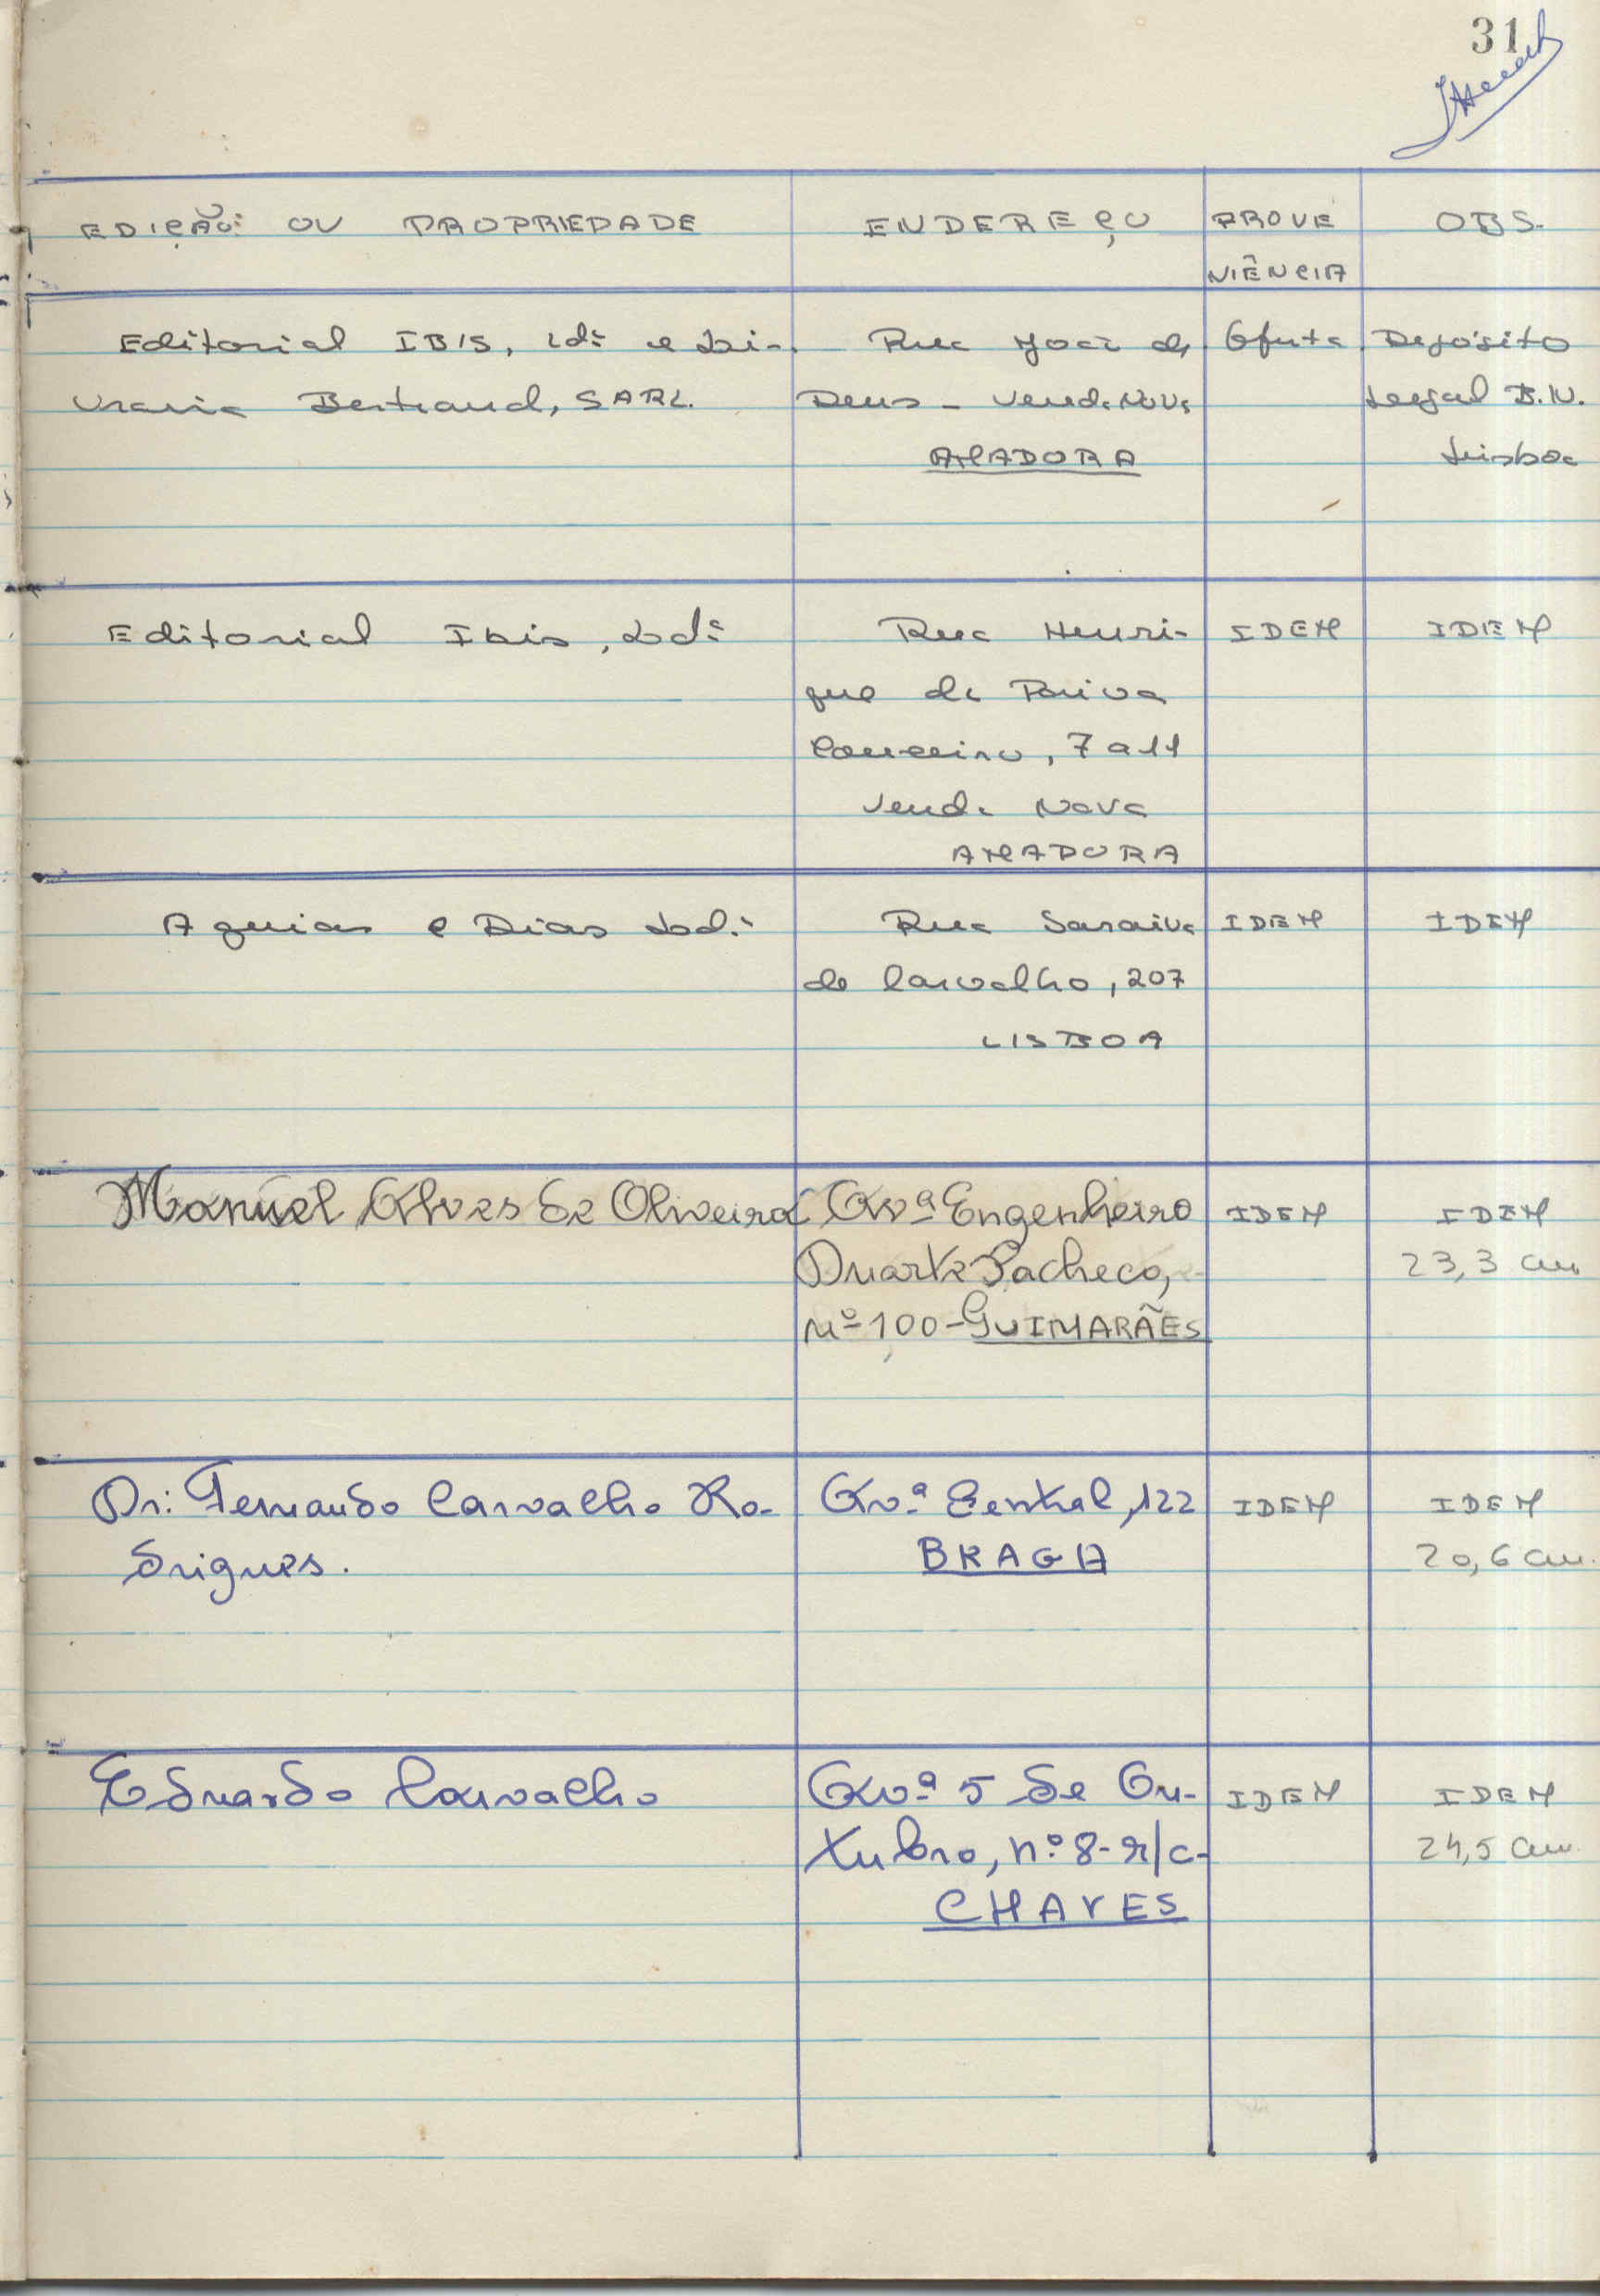 31
EDIÇÃO: OU PROPRIEDADE
ENDEREÇO
PROVE
NIÊNCIA
OBS.
Editorial IBIS, Ldª e Li-
vraria Bertrand, SARL.
Rua João de
Deus - Venda Nova
AMADORA
Oferta
Depósito
Legal B.N.
Lisboa
Editorial Ibis, Ldª
Rua Henri-
que de Paiva
Couceiro, 7 a 11
Venda Nova
AMADORA
IDEM
IDEM
Aguiar e Dias Ldª
Rua Saraiva
de Carvalho, 207
LISBOA
IDEM
IDEM
Manuel Alves de Oliveira
Avª Engenheiro
Duarte Pacheco,
Nº 100 - GUIMARÃES
IDEM
IDEM
23,3 cm
Dr: Fernando Carvalho Ro-
drigues.
Avª Central, 122
BRAGA
IDEM
IDEM
20,6 cm.
Eduardo Carvalho
Avª 5 de Ou-
tubro, nº 8 - r/c -
CHAVES
IDEM
IDEM
24,5 cm.